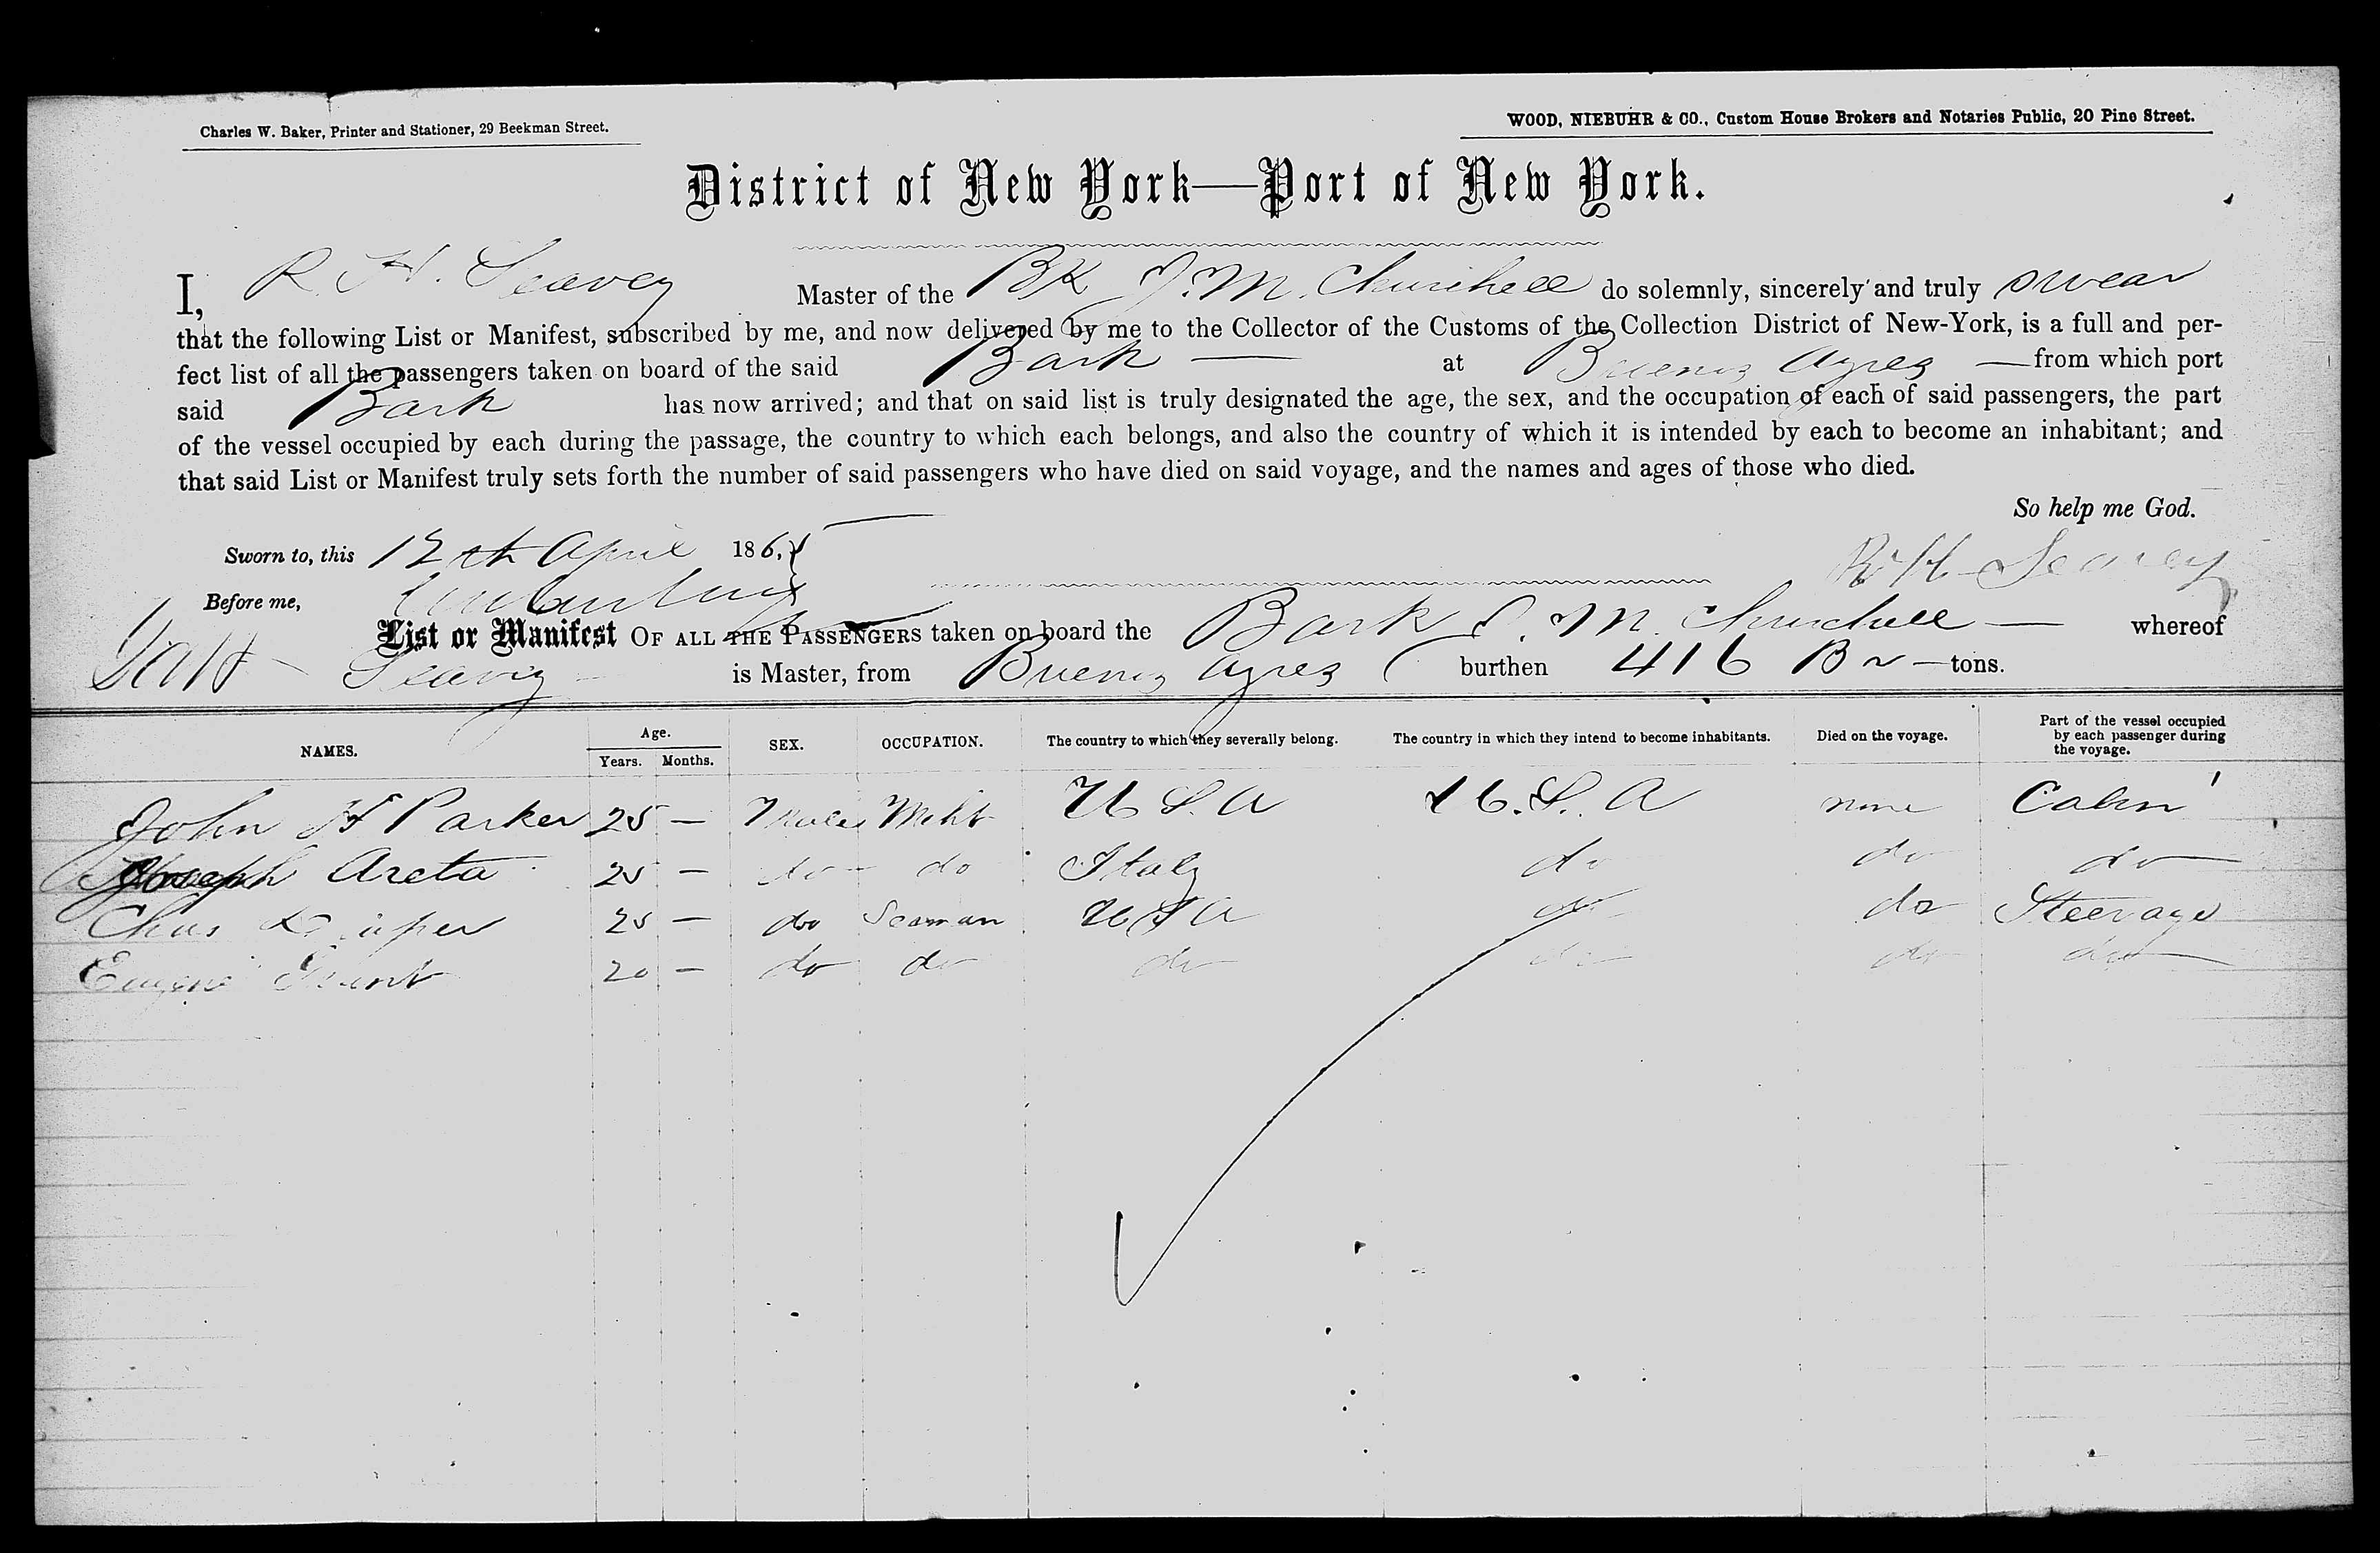 Charles W. Baker, Printer and Stationer, 29 Beekman Street.
WOOD, NIEBUHR & CO., Custom House Brokers and Notaries Public, 20 Pine Street.
District of New York—Port of New York.
I, R. H. Seavey Master of the BK J. M. Churchill do solemnly, sincerely and truly swear
that the following List or Manifest, subscribed by me, and now delivered by me to the Collector of the Customs of the Collection District of New-York, is a full and per-
fect list of all the passengers taken on board of the said Bark — at Buenos Ayres — from which port
said Bark has now arrived; and that on said list is truly designated the age, the sex, and the occupation of each of said passengers, the part
of the vessel occupied by each during the passage, the country to which each belongs, and also the country of which it is intended by each to become an inhabitant; and
that said List or Manifest truly sets forth the number of said passengers who have died on said voyage, and the names and ages of those who died.
So help me God.
Sworn to, this 12th April 186
R H Seavey
Before me,
List or Manifest OF ALL THE PASSENGERS taken on board the Bark J. M. Churchill — whereof
Seavey is Master, from Buenos Ayres burthen 416 tons.
NAMES. Age. Years. Months. SEX. OCCUPATION. The country to which they severally belong. The country in which they intend to become inhabitants. Died on the voyage. Part of the vessel occupied by each passenger during the voyage.
John H Parker 25 — Male Mcht U S A U. S. A none Cabin
Joseph Areta 25 — do do Italy do do do
Chas 25 — do Seaman U S A do do Steerage
Eugene 20 — do do do do do do